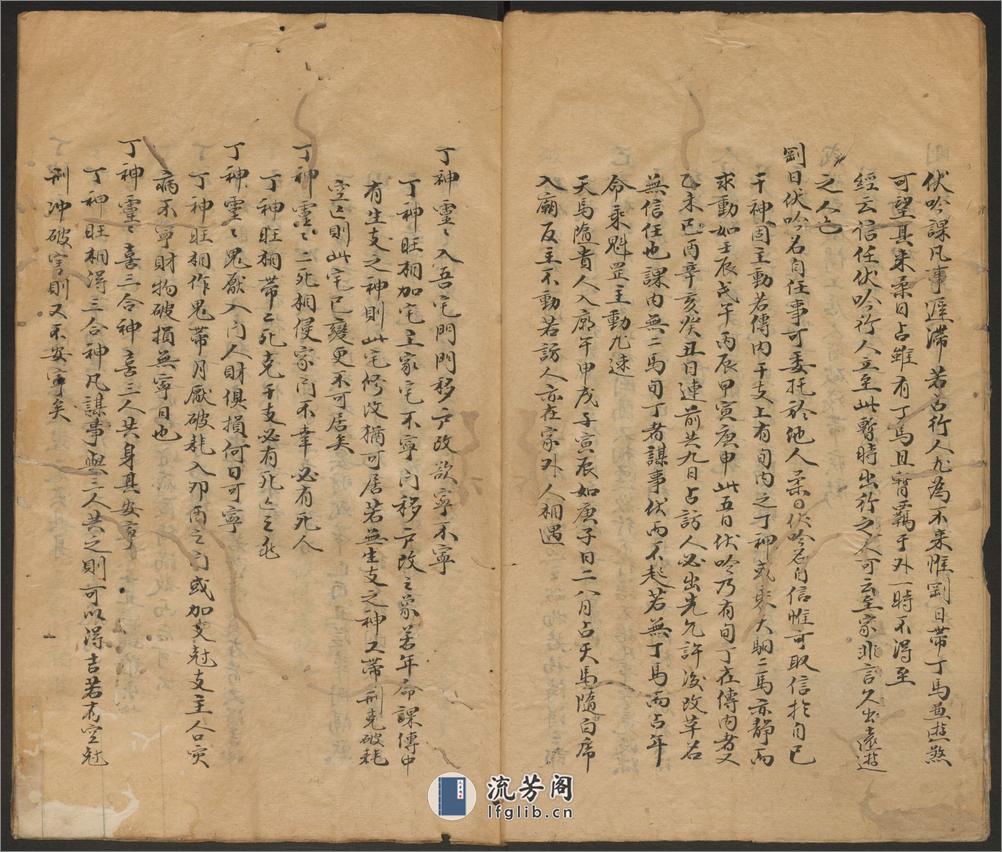 伏吟課凡事涯滯若占行人尤為不来惟劉日帶丁馬並遊煞
可望其来柔日占雖有丁馬且暫羈于外一時不得至
經云信任伏吟行人立至此暫時出行之人可云至家非言久出遠遊
之人也
劉日伏吟名自任事可委托於他人柔日伏吟名自信惟可取信扵自已
干神固主動若傳内干支上有旬内之丁神或乘天駟二馬亦静而
求動如壬辰戊午丙辰甲寅庚申此五日伏吟乃有旬丁在傳内者又
乙未己酉辛亥癸丑日連前共九日占訪人必出先允許後改革若
無信任也課内無二馬旬丁者謀事伏而不起若無丁馬而占年
命乘魁罡主動尤速
天馬隨貴人入廟午申戌子寅辰如庚子日二八月占天馬隨白虎
入廟反主不動若訪人亦在家外人相遇
丁神靈〻入吾宅門門移户改欲寧不寧
丁神旺相加宅主家宅不寧门移户改之象若年命課傳中
有生支之神則此宅修改猶可居若無生支之神又帶刑克破耗
空亡則此宅已變更不可居矣
丁神靈〻二死相侵家门不幸必有死人
丁神旺相帶二死克干支必有死亡之兆
丁神靈〻鬼厭入门人財俱損何日可寧
丁神旺相作鬼帶月厭破耗入卯酉之门或加支尅支主人口灾
病不寧財物破損無寧日也
丁神靈〻喜三合神喜三人共身其安寧
丁神旺相得三合神凡謀事與三人共之則可以得吉若有空尅
刑沖破害則又不安寧矣
流芳阁
lfglib.cn